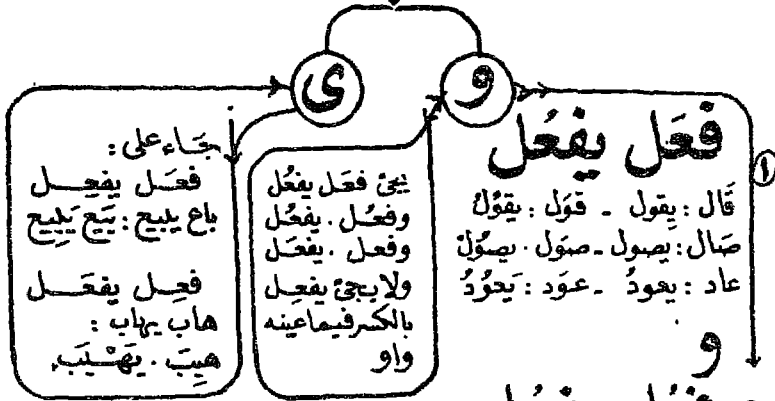 و
ى
فَعَل يفعُل
١
قَال : يقول ـ قوَل : يقوُلُ
صَال : يصول ـ صوَل . يصوُلُ
عاد : يعودُ ـ عوَد : يَعوُدُ
و
يجئ فعَل يفعُل
وفعُل . يفعُل
وفعل . يفعَل
ولا يجئ يفعِل
بالكسر فيما عينه
واو
جَاء على :
فعَل يفعِل
باع يبيع : بَيَع يَبيِع
فعِل يفعَل
هاب يهاب :
هيِبَ . يَهْيَب